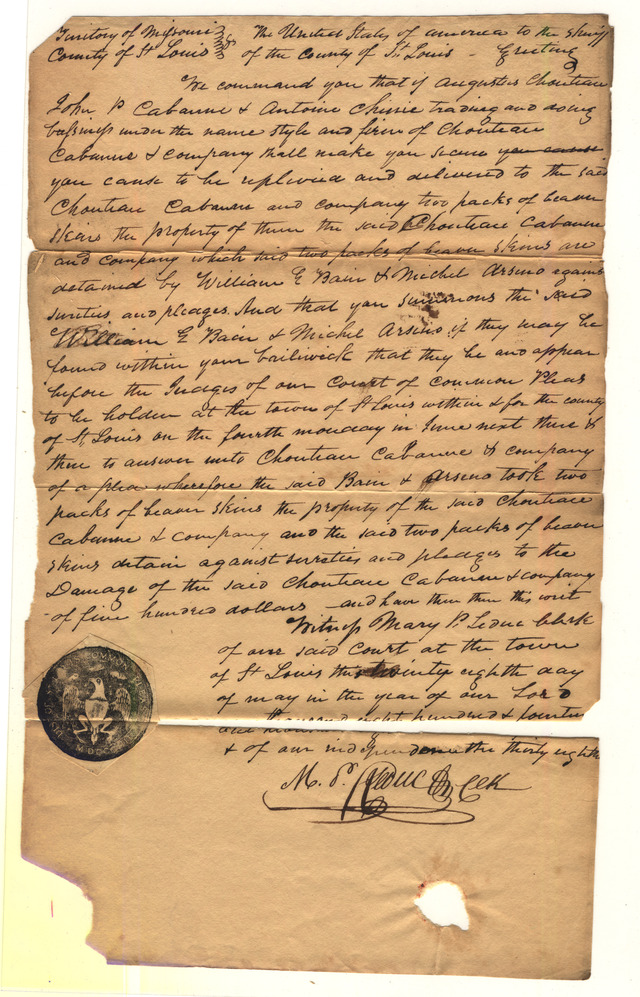 Territory of Missouri
County of St Louis
The United States of america to the Sheriff
of the county of St Louis - Greeting
We command you that if Augustus Chouteau
John P Cabanne & Antoine Chinie trading and doing
business under the name style and firm of Chouteau
Cabanne & company shall make you secure you cause
you cause to be replevied and delivered to the said
Chouteau Cabanne and company two packs of beaver
skins the property of them the said Chouteau Cabanne
and company which said two packs of beaver skins are
detained by William E Bain & Michel Arseno against
sureties and pledges. And that you summons the said
William E Bain & Michel Arseno if they may be
found within your bailiwick that they be and appear
before the Judges of our Court of common Pleas
to be holden at the town of St Louis within & for the county
of St. Louis on the fourth monday in June next then &
there to answer unto Chouteau Cabanne & company
of a plea wherefore the said Bain & Arseno took two
packs of beaver skins the property of the said Chouteau
Cabanne & company and the said two packs of beaver
skins detain against sureties and pledges to the
Damage of the said Chouteau Cabanne & company
of five hundred dollars and have then there this writ
Witness Mary P. Leduc Clerk
of our said Court at the town
of St Louis this twenty eighth day
of may in the year of our Lord
one thousand eight hundred & fourteen
& of our independence the thirty eighth
M. P. Leduc Clk